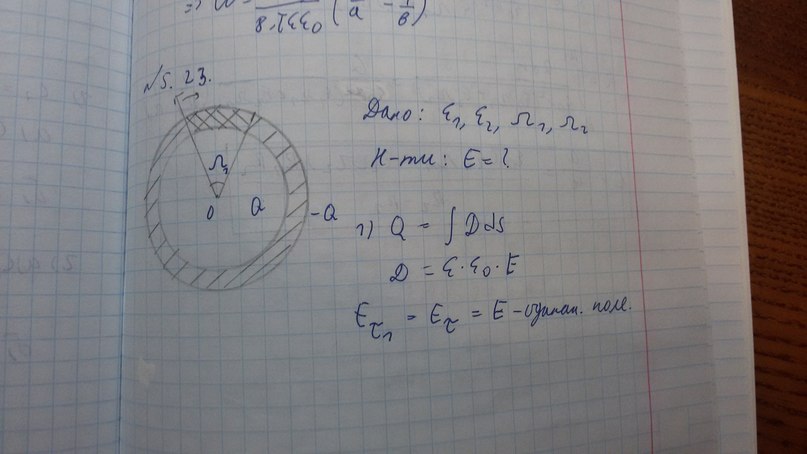 => W = 8·πεε₀ ( 1/a - 1/b )
№5. 23.
Дано: ε₁, ε₂, Ω₁, Ω₂
Н-ти: E = ?
Ω₁
0 Q -Q
1) Q = ∫ D dS
D = ε·ε₀·E
Eτ₁ = Eτ = E - одинак. поле.